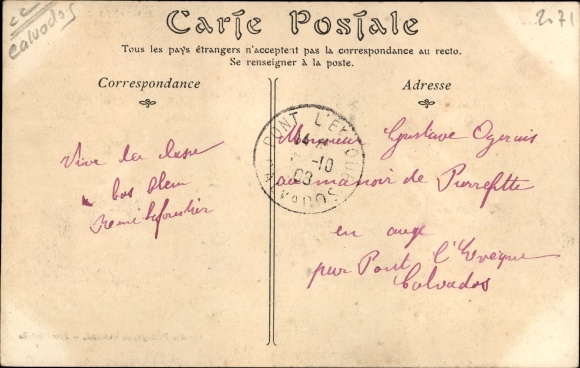 Calvados
2071
Carte Postale
Tous les pays étrangers n'acceptent pas la correspondance au recto.
Se renseigner à la poste.
Correspondance
Adresse
PONT L'EVEQUE
CALVADOS
-10
08
Vive la classe
Monsieur Gustave
au manoir de Pierrefitte
en auge
par Pont l'Eveque
Calvados